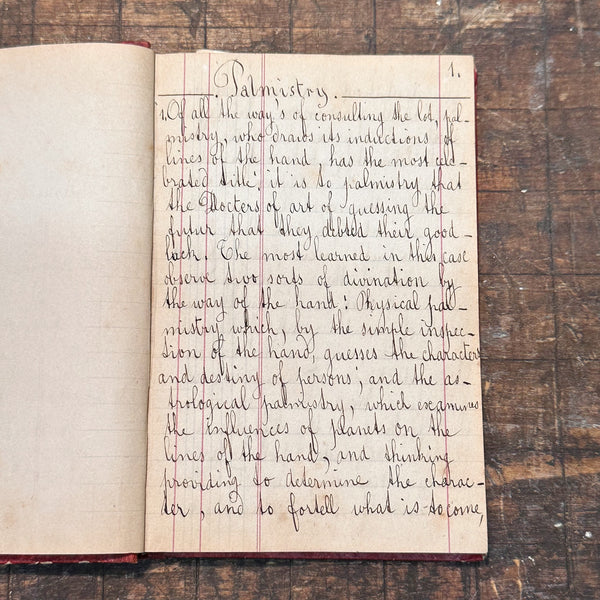 1.
Palmistry.
1. Of all the way's of consulting the lot, pal-
mistry, who draws its inductions of
lines of the hand, has the most cele-
brated title', it is to palmistry that
the Docters of art of guessing the
futur that they debted their good-
luck. The most learned in this case
observe two sorts of divination by
the way of the hand: Physical pal-
mistry which, by the simple inspec-
tion of the hand, guesses the characters
and destiny of persons; and the as-
trological palmistry, which examines
the influences of planets on the
lines of the hand, and thinking
providing to determine the charac-
ter, and to fortell what is to come,